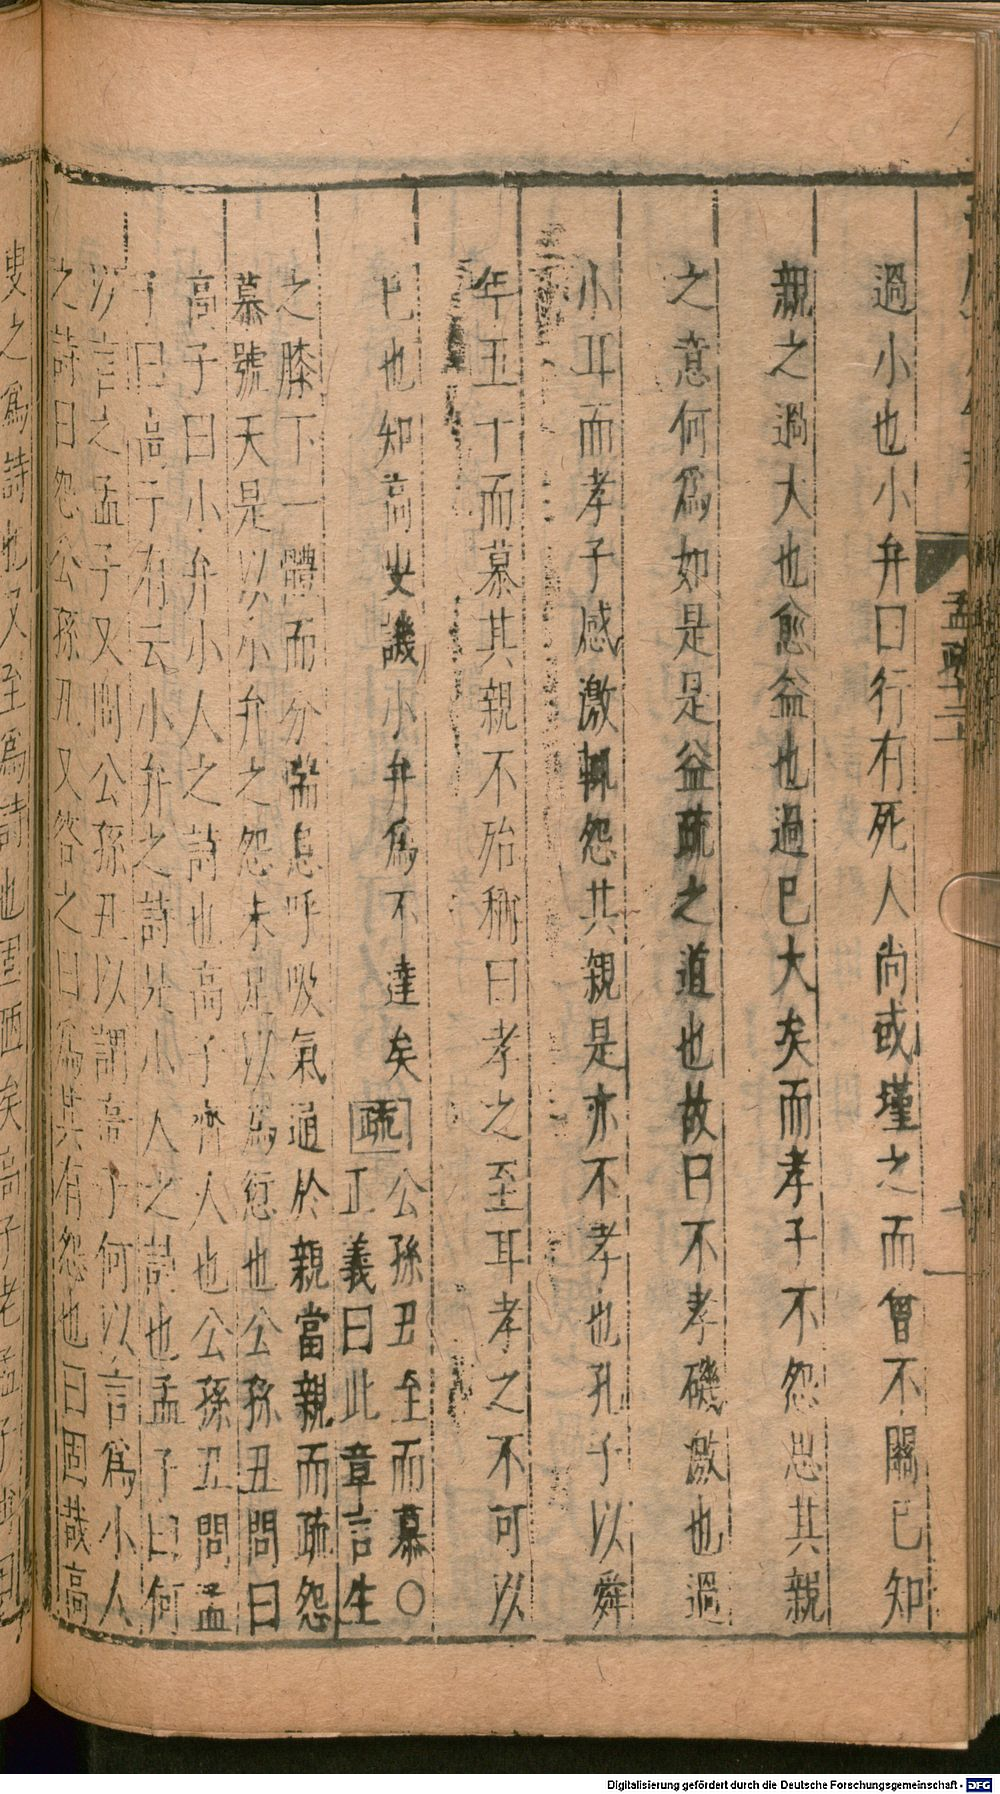 過小也小弁曰行有死人尚或墐之而曾不關已知
親之過大也愈益也過已大矣而孝子不怨思其親
之意何爲如是是益疏之道也故曰不孝磯激也過
小耳而孝子感激輒怨其親是亦不孝也孔子以舜
年五十而慕其親不殆稱曰孝之至耳孝之不可以
已也知高叟譏小弁爲不達矣
疏
公孫丑至而慕○
正義曰此章言生
之膝下一體而分喘息呼吸氣通於親當親而疏怨
慕號天是以小弁之怨未足以爲愆也公孫丑問曰
高子曰小弁小人之詩也高子齊人也公孫丑問孟
子曰高子有云小弁之詩此小人之詩也孟子曰何
以言之孟子又問公孫丑以謂高子何以言爲小人
之詩曰怨公孫丑又答之曰爲其有怨也曰固哉高
叟之爲詩也又至爲詩也固陋矣高子老孟子
孟疏十二
Digitalisierung gefördert durch die Deutsche Forschungsgemeinschaft - DFG